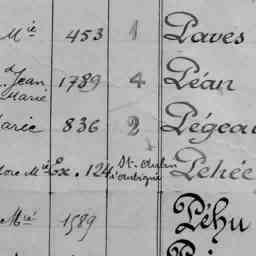 Mie 453 1 Paves
Jean Marie 1789 4 Péan
Marie 836 2 Pégeau
Mie Ex. 124 St. Aubin d'Aubigné Pehée
Mié 1589 Péhu